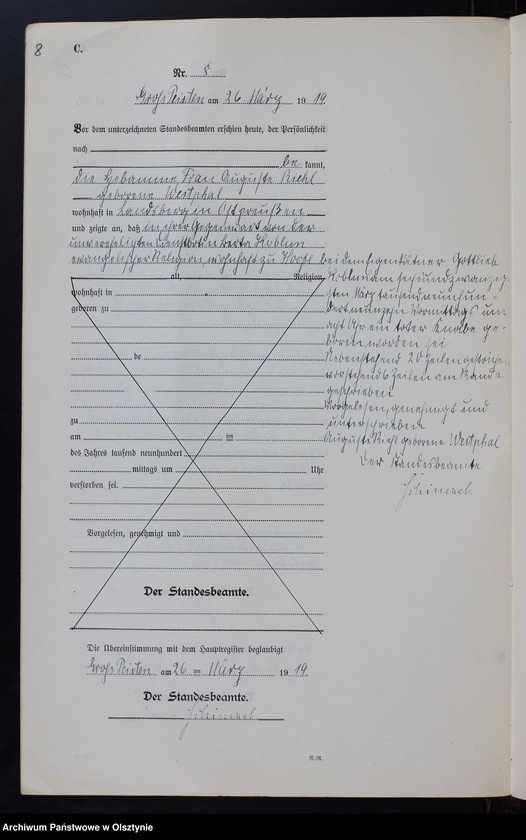 8
C.
Nr. 5
Groß Peisten am 26 März 1919.
Vor dem unterzeichneten Standesbeamten erschien heute, der Persönlichkeit
nach
be kannt,
die Hebamme Frau Auguste Riehl
geborene Westphal
wohnhaft in Landsberg in Ostpreußen
und zeigte an, daß in ihrer Gegenwart von der
unverehelichten Dienstbotin Berta
evangelischer Religion, wohnhaft zu
alt, Religion,
wohnhaft in
geboren zu
de
zu
am im
des Jahres tausend neunhundert
mittags um Uhr
verstorben sei.
Vorgelesen, genehmigt und
Der Standesbeamte.
bei dem Eigenkätner Gottlieb
am sechsundzwanzig-
sten März tausend neunhun-
dert neunzehn Vormittags um
acht Uhr ein toter Knabe ge-
boren worden sei
Nebenstehend 20 Zeilen gestrichen
vorstehend 6 Zeilen am Rande
geschrieben
Vorgelesen, genehmigt und
unterschrieben
Auguste Riehl geborene Westphal
Der Standesbeamte
Die Übereinstimmung mit dem Hauptregister beglaubigt
Groß Peisten am 26 ten März 1919.
Der Standesbeamte.
Archiwum Państwowe w Olsztynie